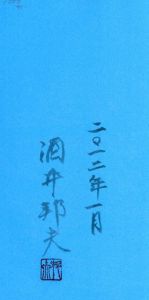 二〇一二年一月
酒井邦夫